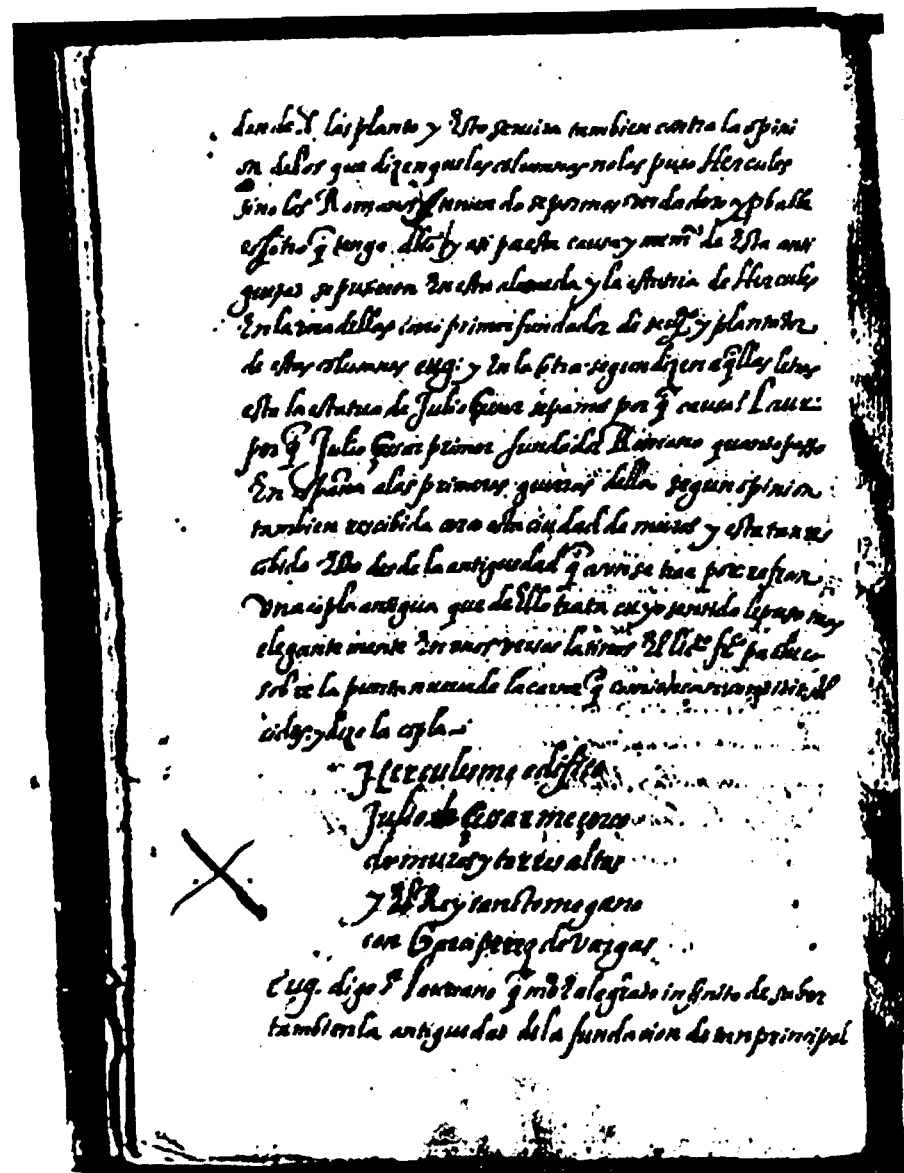 donde el las planto y esto seruira tambien contra la opini
on delos que dizen que las columnas no las puso Hercules
sino los Romanos teniendo se por mas verdadero y
es lo otro q̃ tengo dho y asi pa esta causa y mem.ª de esta anti
guedad se pusieron en esta alameda y la estatua de Hercules
en la vna dellas como primer fundador de y plantador
de estas columnas eug: y en la otra segun dizen aq̃llas letras
esta la estatua de Julio Cesar sepamos por q̃ causa! Laur:
por q̃ Julio Cesar primer fundador Romano quando passo
en españa alas primeras guerras della segun opinion
tambien rescibida cerco esta ciudad de muros y esta tan res
cibido esto desde la antiguedad q̃ aun se trae por refran
vna copla antigua que de ello trata cuyo sentido le puso muy
elegante mente en unos versos latinos el liçdo frco pacheco
sobre la puerta nueua de la carne q̃
cides. y dize la copla.
Hercules me edifico
Julio Cesar me çerco
de muros y torres altas
y el Rey sancto me gano
con Garci perez de Vargas
Eug. digo sr Laureano q̃ me e alegrado infinito de saber
tambien la antiguedad dela fundacion de tan principal